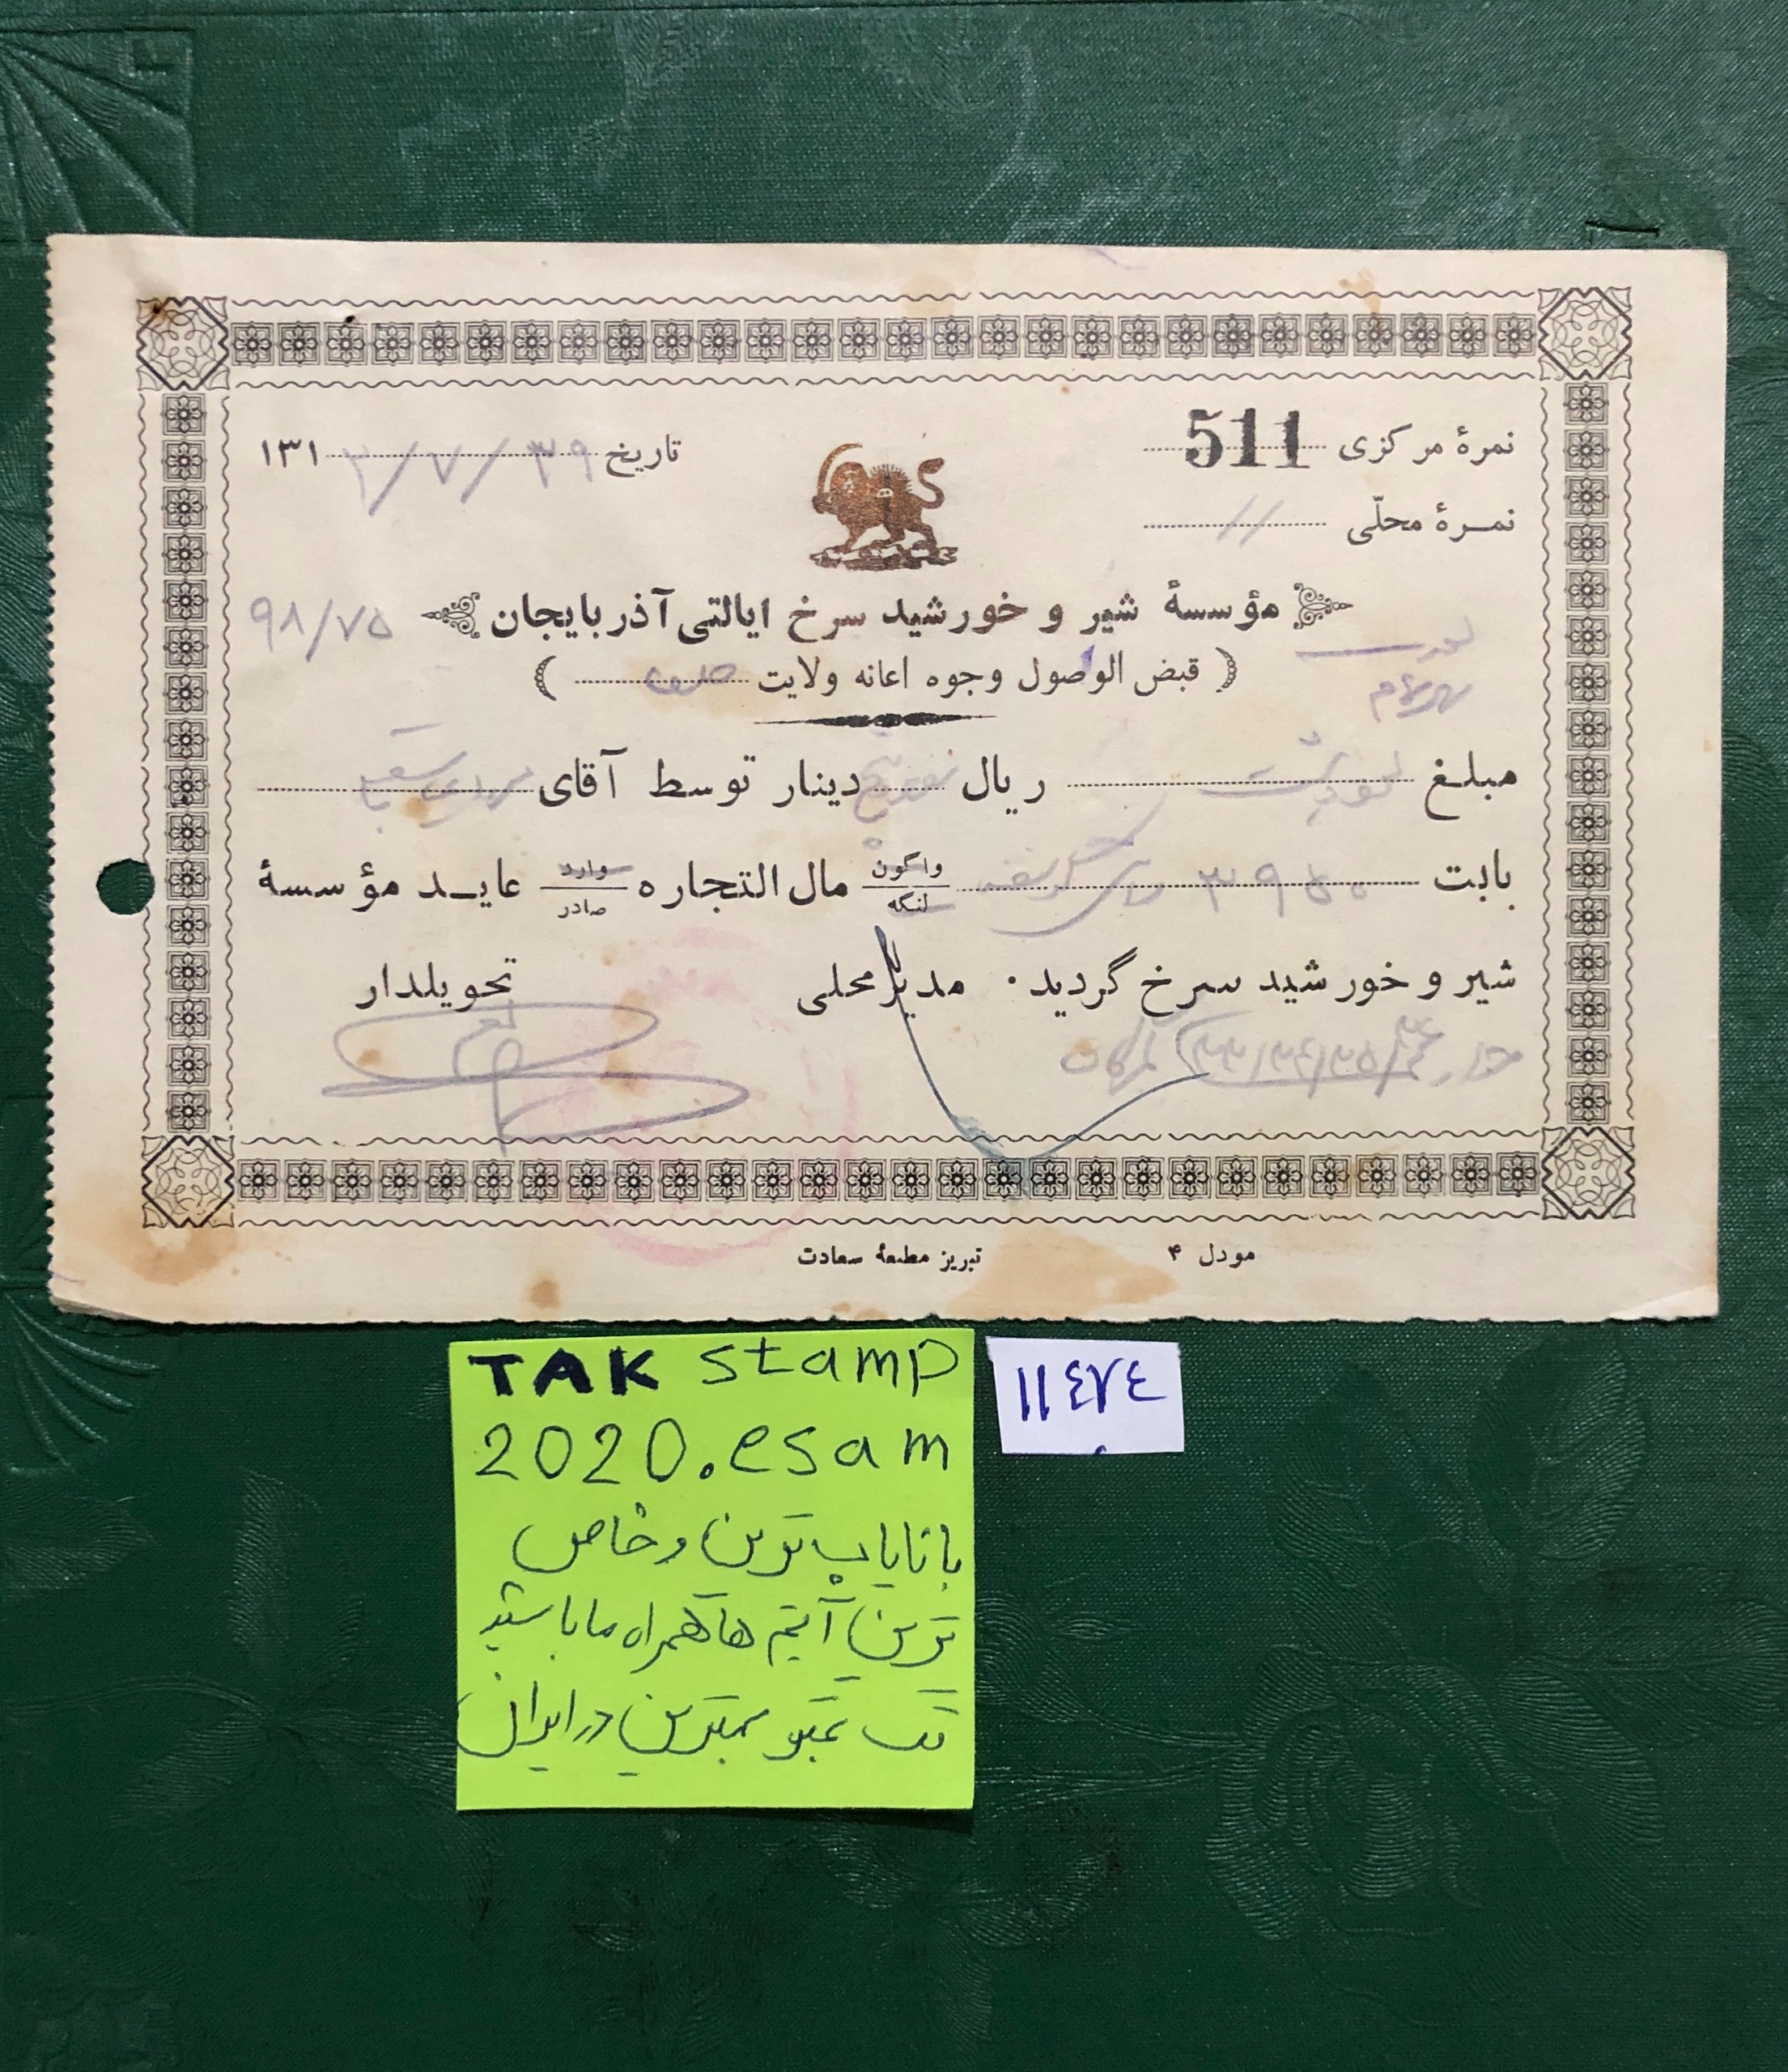 نمرهٔ مرکزی 511
تاریخ ۲۹/۷/۳ ۱۳۱
نمرهٔ محلّی //
مؤسسهٔ شیر و خورشید سرخ ایالتی آذربایجان
۹۸/۷۵
( قبض الوصول وجوه اعانه ولایت )
مبلغ ریال دینار توسط آقای
بابت ۳۹۵۰ واگون لنگه مال التجاره وارد صادر عاید مؤسسهٔ
شیر و خورشید سرخ گردید. مدیر محلی تحویلدار
مودل ۴ تبریز مطبعهٔ سعادت
TAK stamp
2020.esam
۱۱٤۷٤
با نایاب ترین و خاص
ترین آیتم ها همراه ما باشید
تک تمبر بهترین در ایران